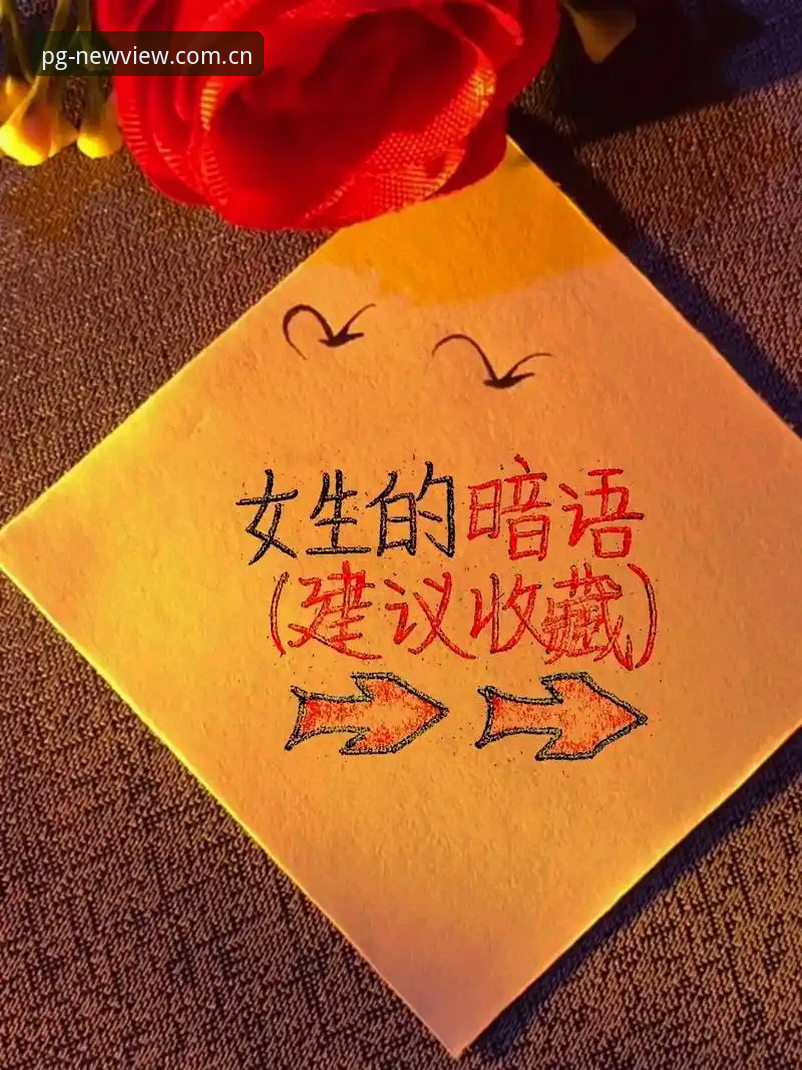 pg-newview.com.cn
女生的暗语
(建议收藏)